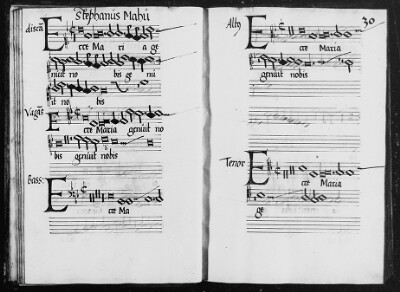 Stephanus Mahu
discã
Ecce Ma ri a ge
nuit no bis ge nu
it no bis
Vagãs
Ecce Maria genuit no
bis genuit nobis
Bass:
Ecce Ma
Altg
30
Ecce Maria
genuit nobis
Tenor
Ecce Maria
ge